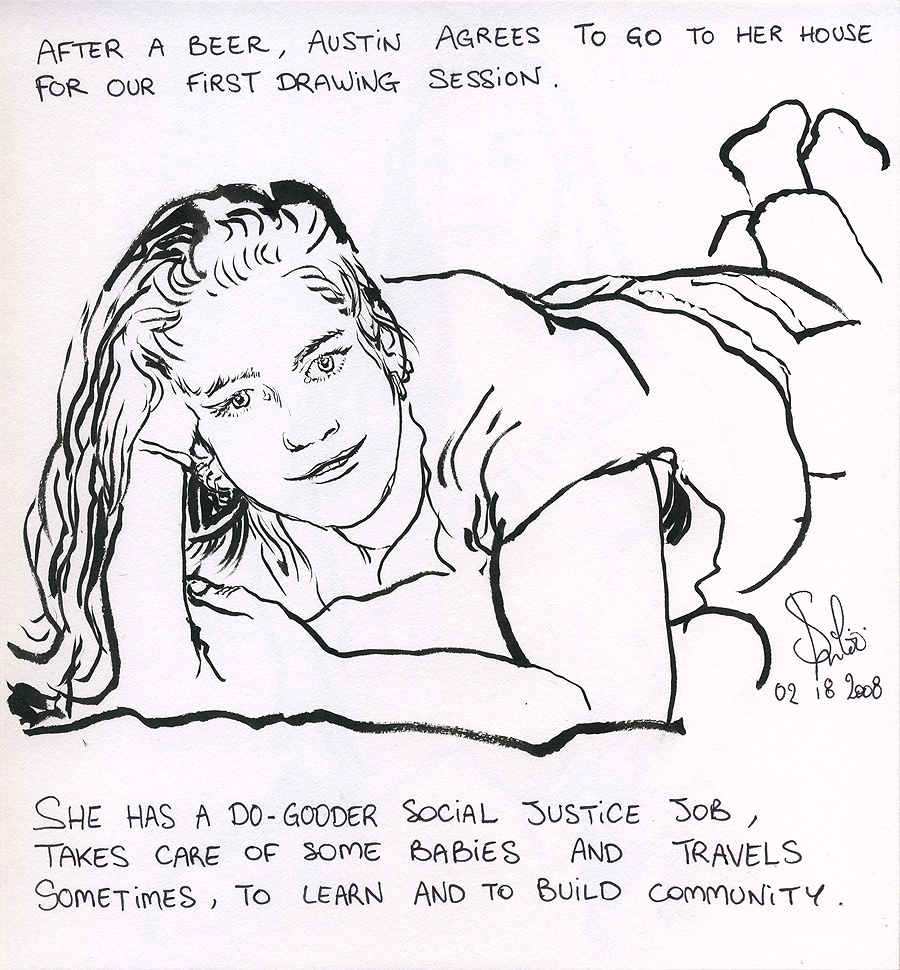 AFTER A BEER, AUSTIN AGREES TO GO TO HER HOUSE
FOR OUR FIRST DRAWING SESSION.
02 18 2008
SHE HAS A DO-GOODER SOCIAL JUSTICE JOB,
TAKES CARE OF SOME BABIES AND TRAVELS
SOMETIMES, TO LEARN AND TO BUILD COMMUNITY.